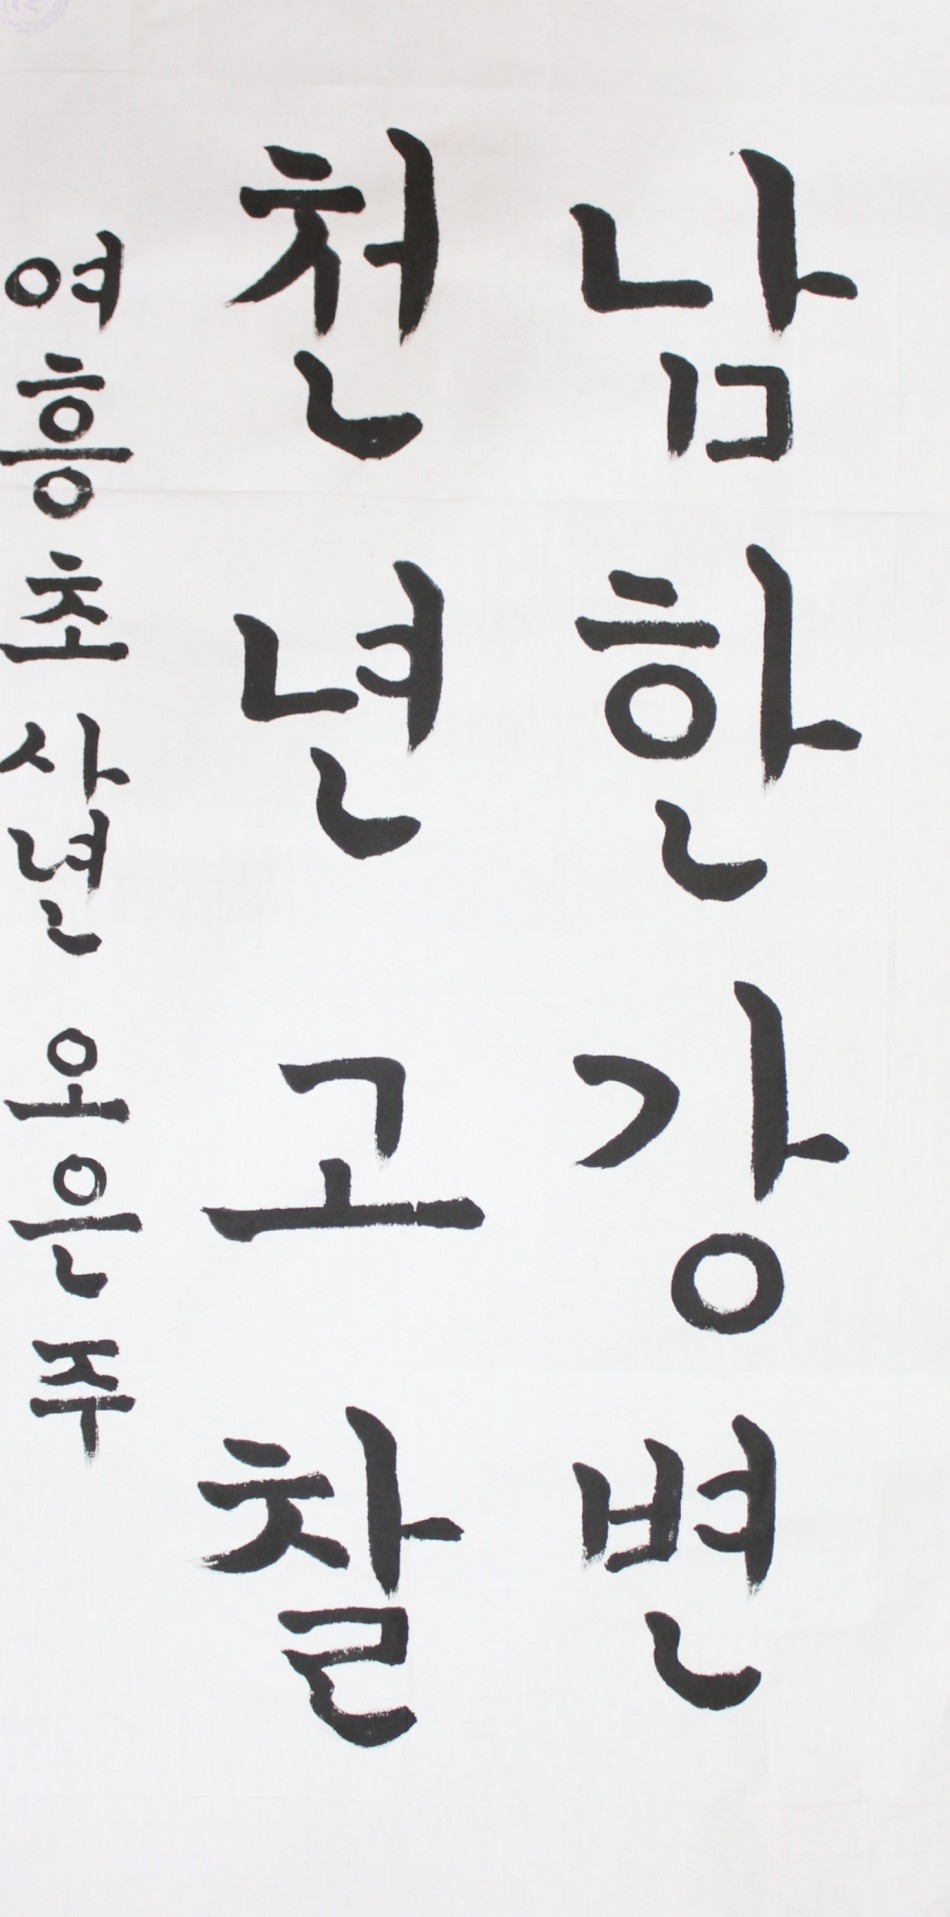 남한강변
천년고찰
여흥초 사년 오은주